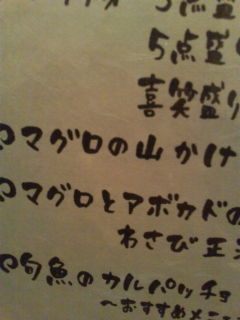 5点盛
5点盛
喜笑盛り
マグロの山かけ
マグロとアボカドの
わさび
旬魚のカルパッチョ
〜おすすめメニュ